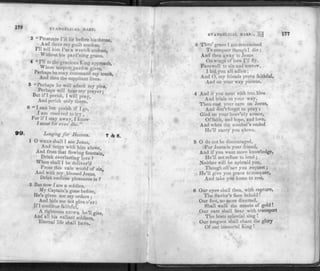 176
EVANGELICAL HARP.
3 "Prostrate I'll lie before his throne,
And there my guilt confess,
I'll tell him I'm a wretch undone,
Without his pard'ning grace.
4 "I'll to the gracious King approach,
Whose sceptre pardon gives,
Perhaps he may command my touch,
And then the suppliant lives.
5 "Perhaps he will admit my plea,
Perhaps will hear my prayer;
But if I perish, I will pray,
And perish only there.
6 "I can but perish if I go,
I am resolved to try,
For if I stay away, I know
I must for ever die."
99. Longing for Heaven. 7 & 6.
1 O when shall I see Jesus,
And reign with him above,
And from that flowing fountain,
Drink everlasting love!
When shall I be deliver'd
From this vain world of sin,
And with my blessed Jesus,
Drink endless pleasures in?
2 But now I am a soldier,
My Captain's gone before,
He's given me my orders,
And bids me not give o'er;
If I continue faithful,
A righteous crown he'll give,
And all his valiant soldiers,
Eternal life shall have.
EVANGELICAL HARP.
177
3 Thro' grace I am determined
To conquer though I die;
And then away to Jesus
On wings of love I'll fly.
Farewell to sin and sorrow,
I bid you all adieu;
And O, my friends prove faithful,
And on your way pursue.
4 And if you meet with troubles
And trials on your way,
Then cast your care on Jesus,
And don't forget to pray;
Gird on your heav'nly armor,
Of faith, and hope, and love,
And when the combat's ended
He'll carry you above.
5 O do not be discouraged,
For Jesus is your friend,
And if you want more knowledge,
He'll not refuse to lend;
Neither will he upbraid you,
Though often you request;
He'll give you grace to conquer,
And take you home to rest.
6 Our eyes shall then, with rapture,
The Savior's face behold!
Our feet, no more diverted,
Shall walk the streets of gold!
Our ears shall hear with transport
The hosts celestial sing!
Our tongues shall chant the glory
Of our immortal King!